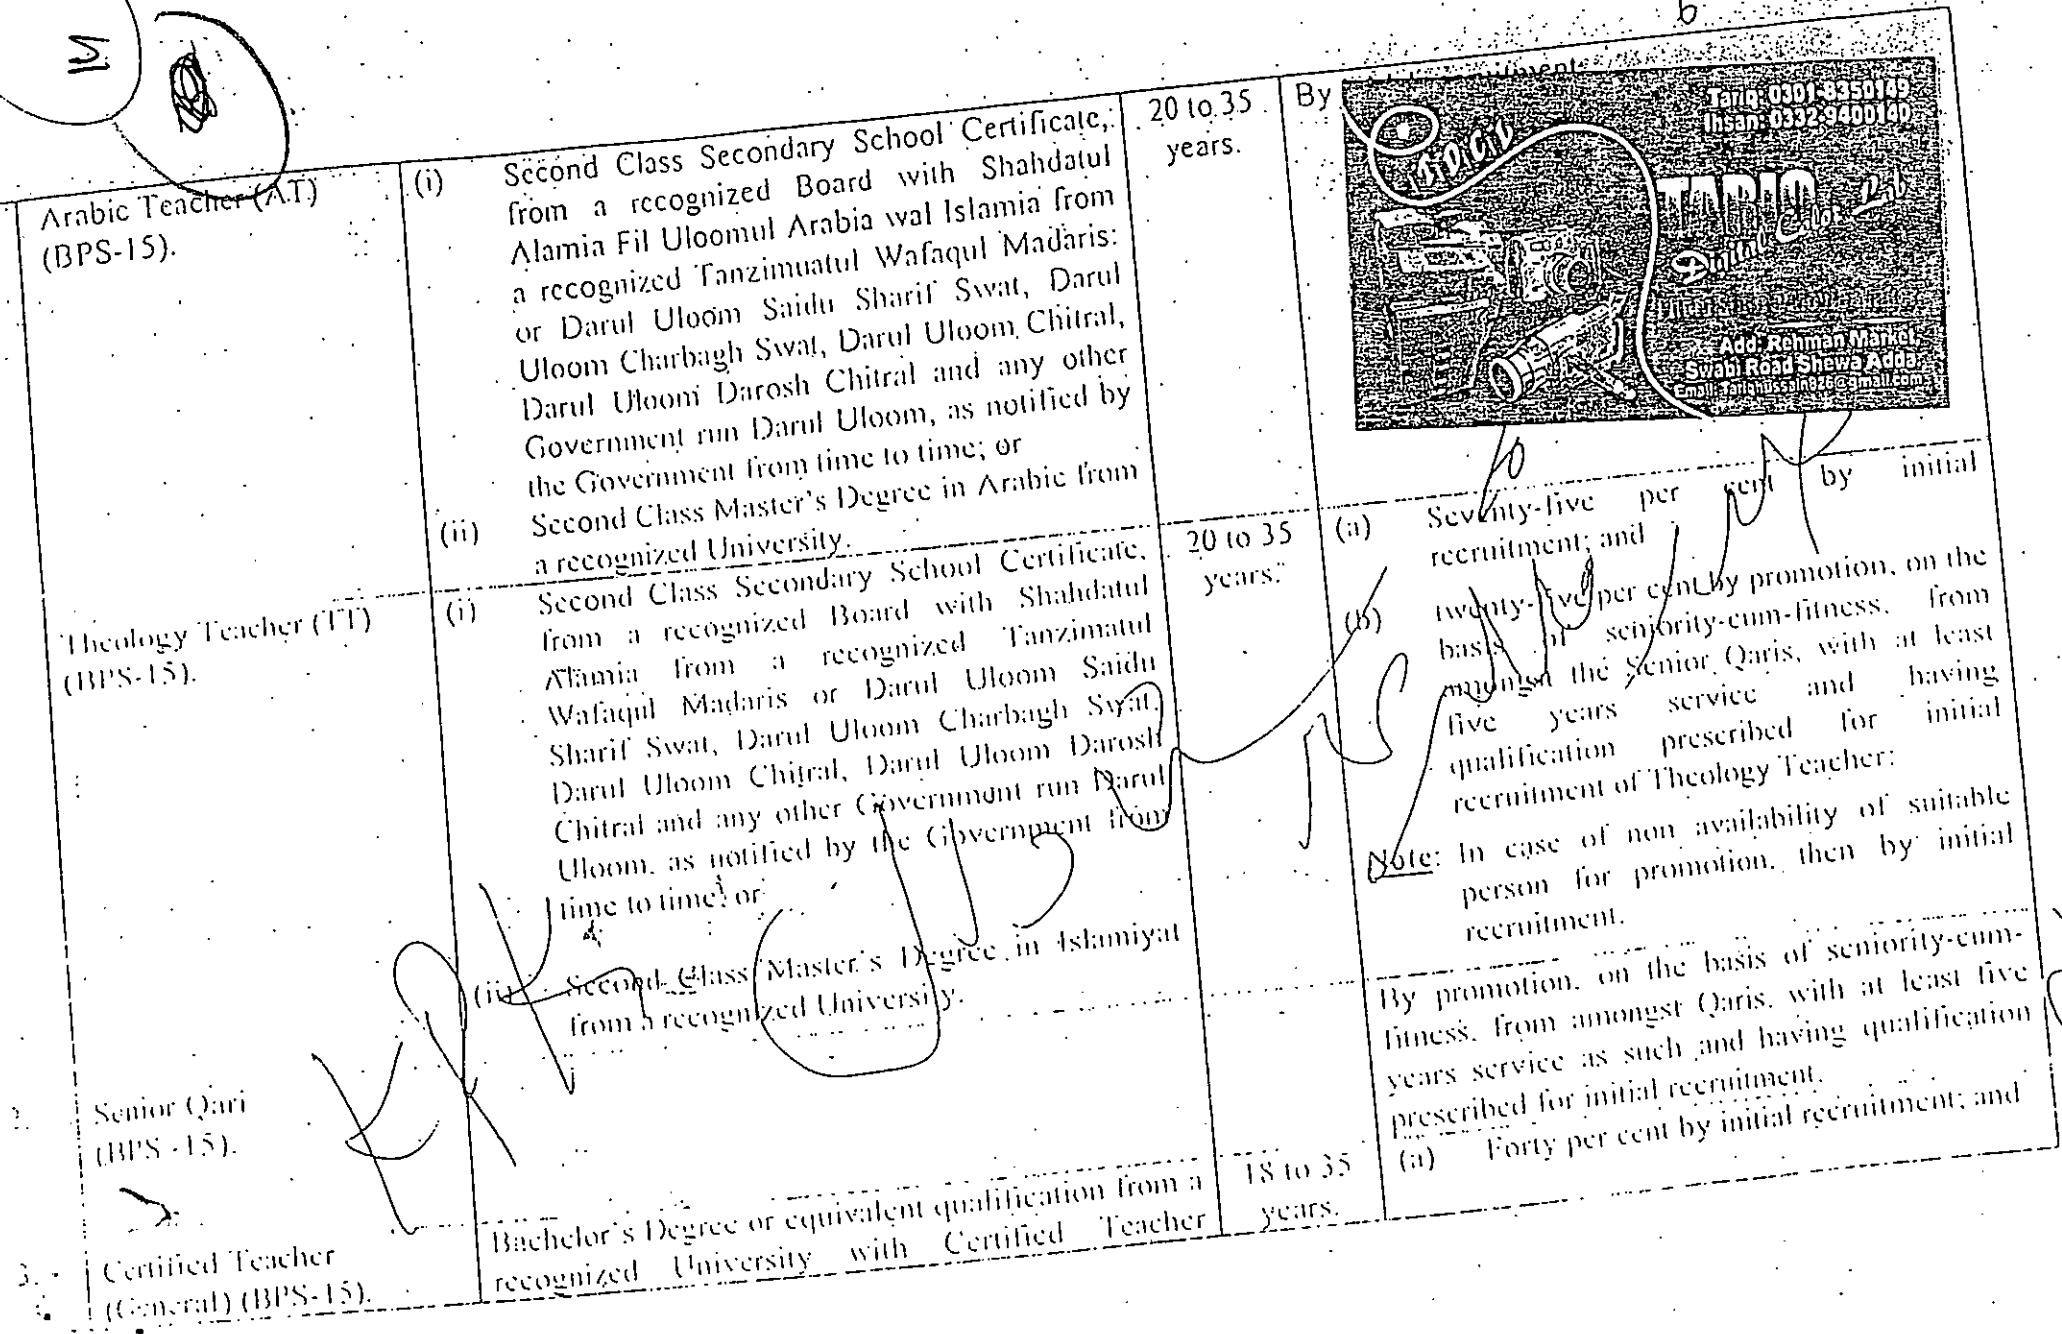 Arabic Teacher (A.T)
(BPS-15).
(i) Second Class Secondary School Certificate,
from a recognized Board with Shahdatul
Alamia Fil Uloomul Arabia wal Islamia from
a recognized Tanzimuatul Wafaqul Madaris:
or Darul Uloom Saidu Sharif Swat, Darul
Uloom Charbagh Swat, Darul Uloom Chitral,
Darul Uloom Darosh Chitral and any other
Government run Darul Uloom, as notified by
the Government from time to time; or
(ii) Second Class Master's Degree in Arabic from
a recognized University.
20 to 35
years.
By
Tariq: 0301-8350149
Ihsan: 0332-9400140
TARIQ
Digital Color Lab
Add: Rehman Market,
Swabi Road Shewa Adda.
Theology Teacher (TT)
(BPS-15).
(i) Second Class Secondary School Certificate,
from a recognized Board with Shahdatul
Alamia from a recognized Tanzimatul
Wafaqul Madaris or Darul Uloom Saidu
Sharif Swat, Darul Uloom Charbagh Swat,
Darul Uloom Chitral, Darul Uloom Darosh
Chitral and any other Government run Darul
Uloom, as notified by the Government from
time to time; or
(ii) Second Class Master's Degree in Islamiyat
from a recognized University.
20 to 35
years.
(a) Seventy-five per cent by initial
recruitment; and
(b) twenty-five per cent by promotion, on the
basis of seniority-cum-fitness, from
amongst the Senior Qaris, with at least
five years service and having
qualification prescribed for initial
recruitment of Theology Teacher:
Note: In case of non availability of suitable
person for promotion, then by initial
recruitment.
2. Senior Qari
(BPS -15).
By promotion, on the basis of seniority-cum-
fitness, from amongst Qaris, with at least five
years service as such and having qualification
prescribed for initial recruitment.
3. Certified Teacher
(General) (BPS-15).
Bachelor's Degree or equivalent qualification from a
recognized University with Certified Teacher
18 to 35
years.
(a) Forty per cent by initial recruitment; and
KPK